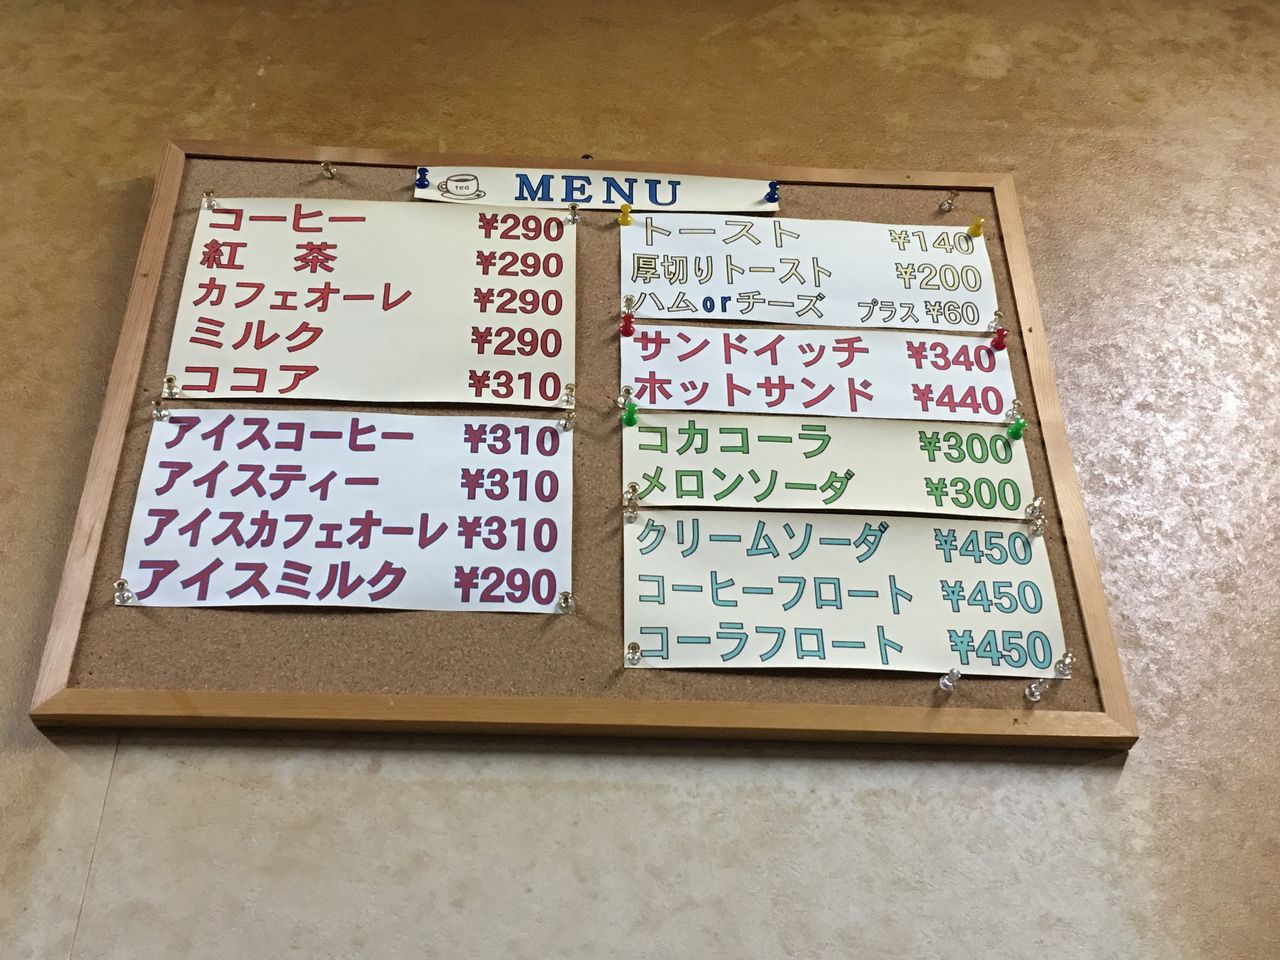 tea
MENU
コーヒー ¥290
紅 茶 ¥290
カフェオーレ ¥290
ミルク ¥290
ココア ¥310
アイスコーヒー ¥310
アイスティー ¥310
アイスカフェオーレ ¥310
アイスミルク ¥290
トースト ¥140
厚切りトースト ¥200
ハムorチーズ プラス ¥60
サンドイッチ ¥340
ホットサンド ¥440
コカコーラ ¥300
メロンソーダ ¥300
クリームソーダ ¥450
コーヒーフロート ¥450
コーラフロート ¥450